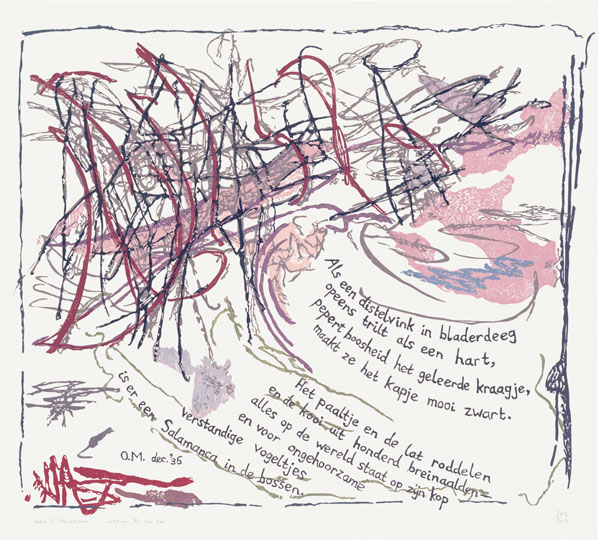 Als een distelvink in bladerdeeg
opeens trilt als een hart,
pepert boosheid het geleerde kraagje,
maakt ze het kapje mooi zwart.
Het paaltje en de lat roddelen
en de kooi uit honderd breinaalden-
alles op de wereld staat op zijn kop
en voor ongehoorzame
verstandige vogeltjes
is er een Salamanca in de bossen.
O.M. dec.'36